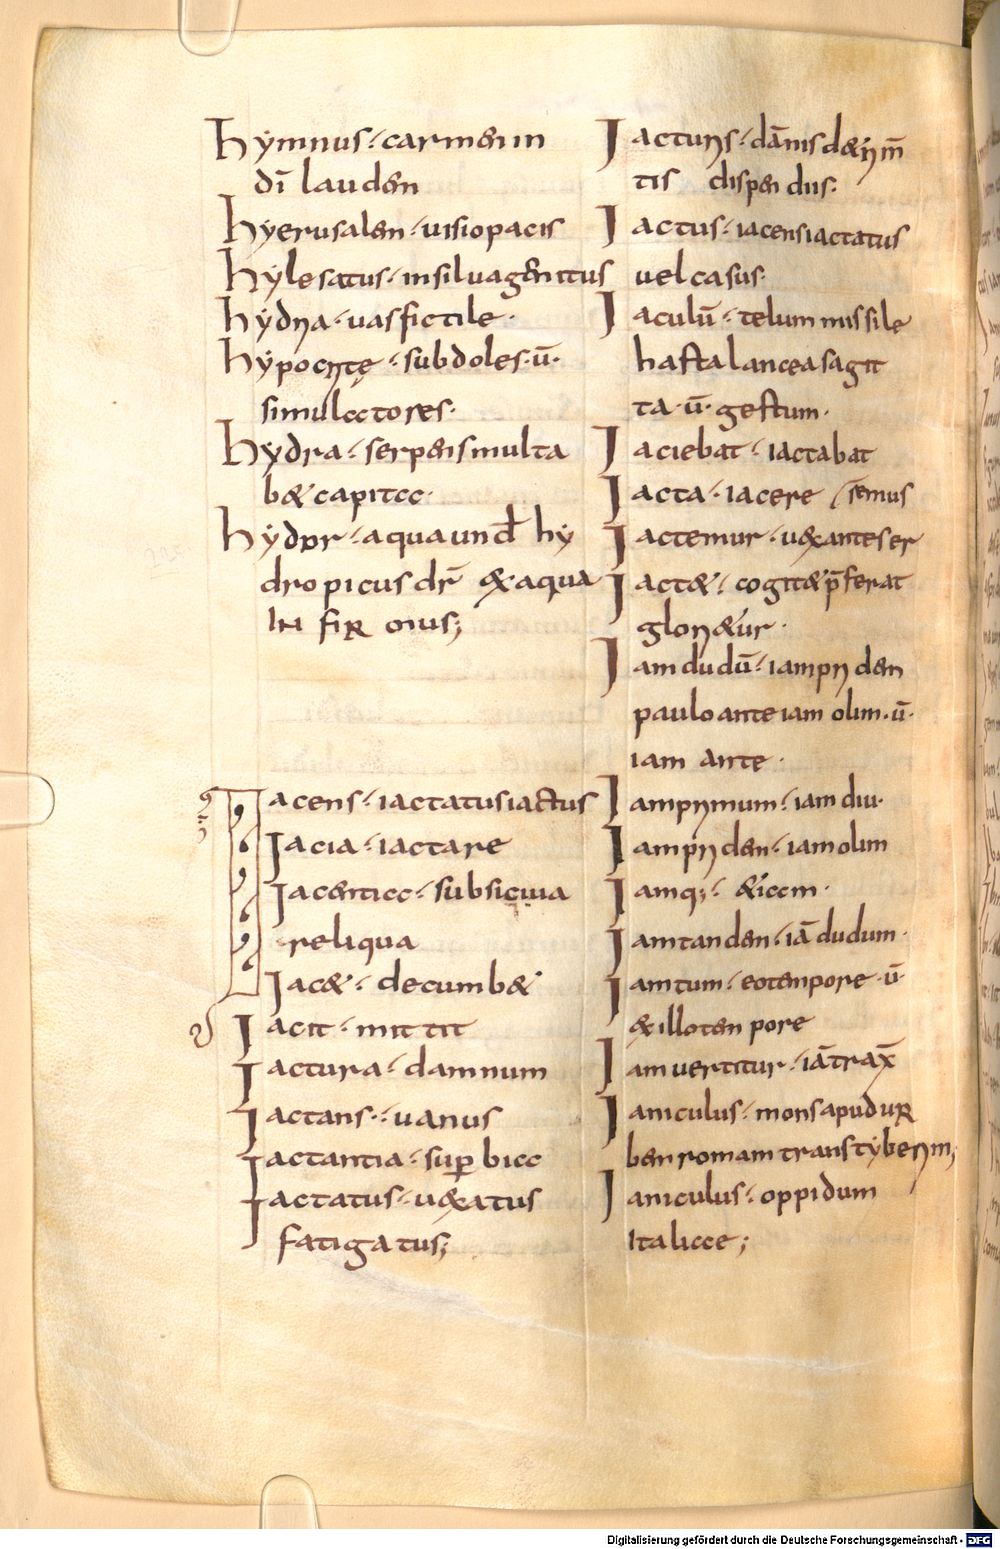 hẏmnus· carm̅ in
dī lauden
hẏerusalen· uisio pacis
hẏlesatus· in silua genitus
hẏdria· uas fictile·
hẏpocritę· subdoles· ū·
simulatores·
hẏdra· serpens multa
b& capita·
hẏdor· aqua und̄ hẏ
dropicus dr̄ &aqua
IN FIR mus;
Iacens· iactatus iactus
Iacia· iactare
Iacentia· subsiciua
reliqua
Iac&· decumb&
Iacit· mittit
Iactura· damnum
Iactans· uanus
Iactantia· sup̱bia
Iactatus· uexatus
fatigatus;
Iacturis· dānis d&rim̄
tis dispendiis·
Iactus· iacens iactatus
uel casus·
Iaculū· telum missile
hasta lancea sagit
ta· ū· gestum·
Iaciebat· iactabat
Iacta· iacere
Iactemur· uexante ser
semus
Iact&· cogit& p̄ferat
glori&ur·
Iam dudū· iampriden
paulo ante iam olim· ū·
iam ante·
Iamprimum· iam diu·
Iampriden· iam olim
Iamq;· &iam·
Iamtanden· iā dudum·
Iamtum· eo tenpore· ū·
&illo tenpore
Iam uertitur· iā trax̄
Ianiculus· mons apud ur
ben romam trans tẏberim;
Ianiculus· oppidum
Italiae;
Digitalisierung gefördert durch die Deutsche Forschungsgemeinschaft - DFG